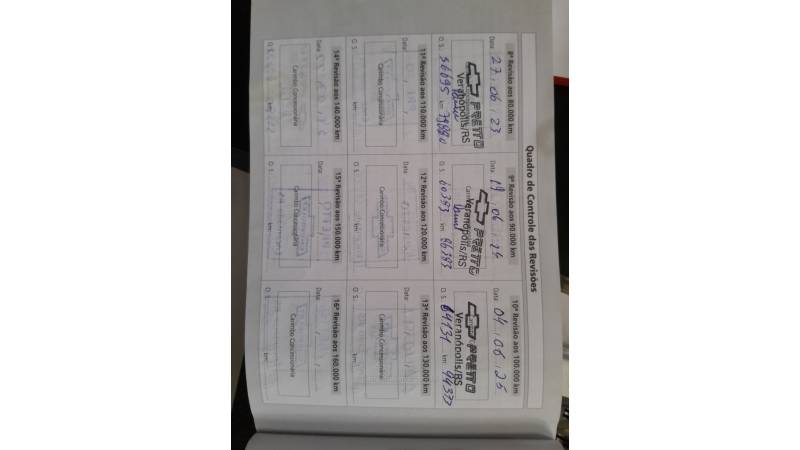 Quadro de Controle das Revisões
8ª Revisão aos 80.000 km
Data: 27 / 06 / 23
PRETTO
Veranópolis/RS
O.S.: 56695 km:
9ª Revisão aos 90.000 km
Data: 19 / 06 / 24
PRETTO
Veranópolis/RS
O.S.: 60393 km: 86393
10ª Revisão aos 100.000 km
Data: 04 / 06 / 25
PRETTO
Veranópolis/RS
O.S.: 64131 km: 94373
11ª Revisão aos 110.000 km
Data:
Carimbo Concessionária
O.S.: km:
12ª Revisão aos 120.000 km
Data:
Carimbo Concessionária
O.S.: km:
13ª Revisão aos 130.000 km
Data:
Carimbo Concessionária
O.S.: km:
14ª Revisão aos 140.000 km
Data:
Carimbo Concessionária
O.S.: km:
15ª Revisão aos 150.000 km
Data:
Carimbo Concessionária
O.S.: km:
16ª Revisão aos 160.000 km
Data:
Carimbo Concessionária
O.S.: km: